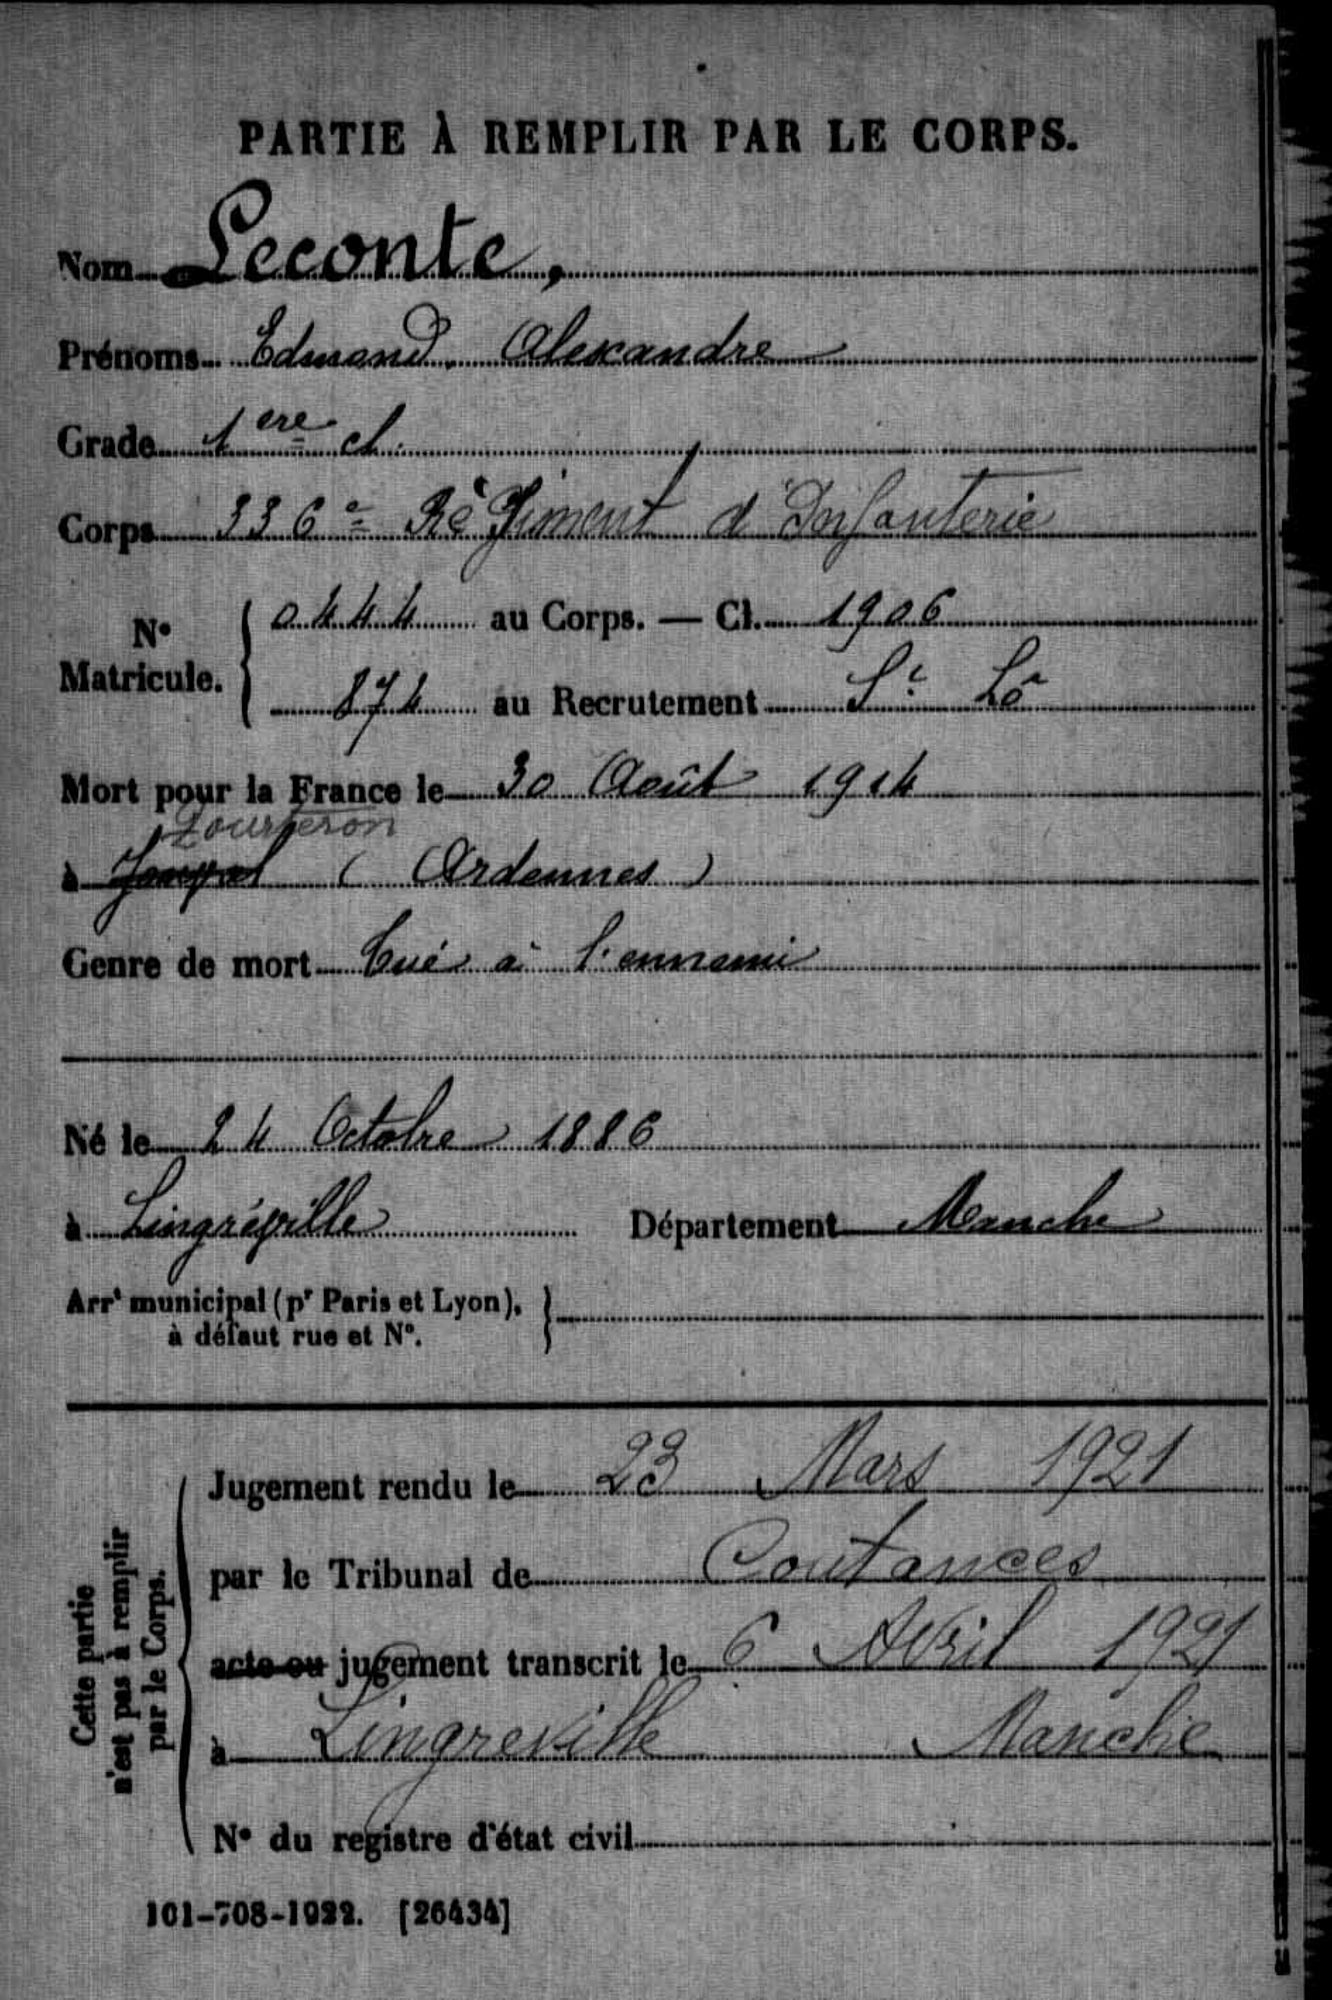 PARTIE À REMPLIR PAR LE CORPS.
Nom Leconte,
Prénoms Edmond. Alexandre
Grade 1ere cl.
Corps 336e Régiment d'Infanterie
N° Matricule. { 0444 au Corps. — Cl. 1906
874 au Recrutement St Lô
Mort pour la France le 30 Août 1914
Tourteron
à (Ardennes)
Genre de mort Tué à l'ennemi
Né le 24 Octobre 1886
à Lingréville Département Manche
Arrt municipal (pr Paris et Lyon), }
à défaut rue et N°.
Cette partie
n'est pas à remplir
par le Corps.
Jugement rendu le 23 Mars 1921
par le Tribunal de Coutances
acte ou jugement transcrit le 6 Avril 1921
à Lingreville Manche
N° du registre d'état civil
101-708-1922. [26434]